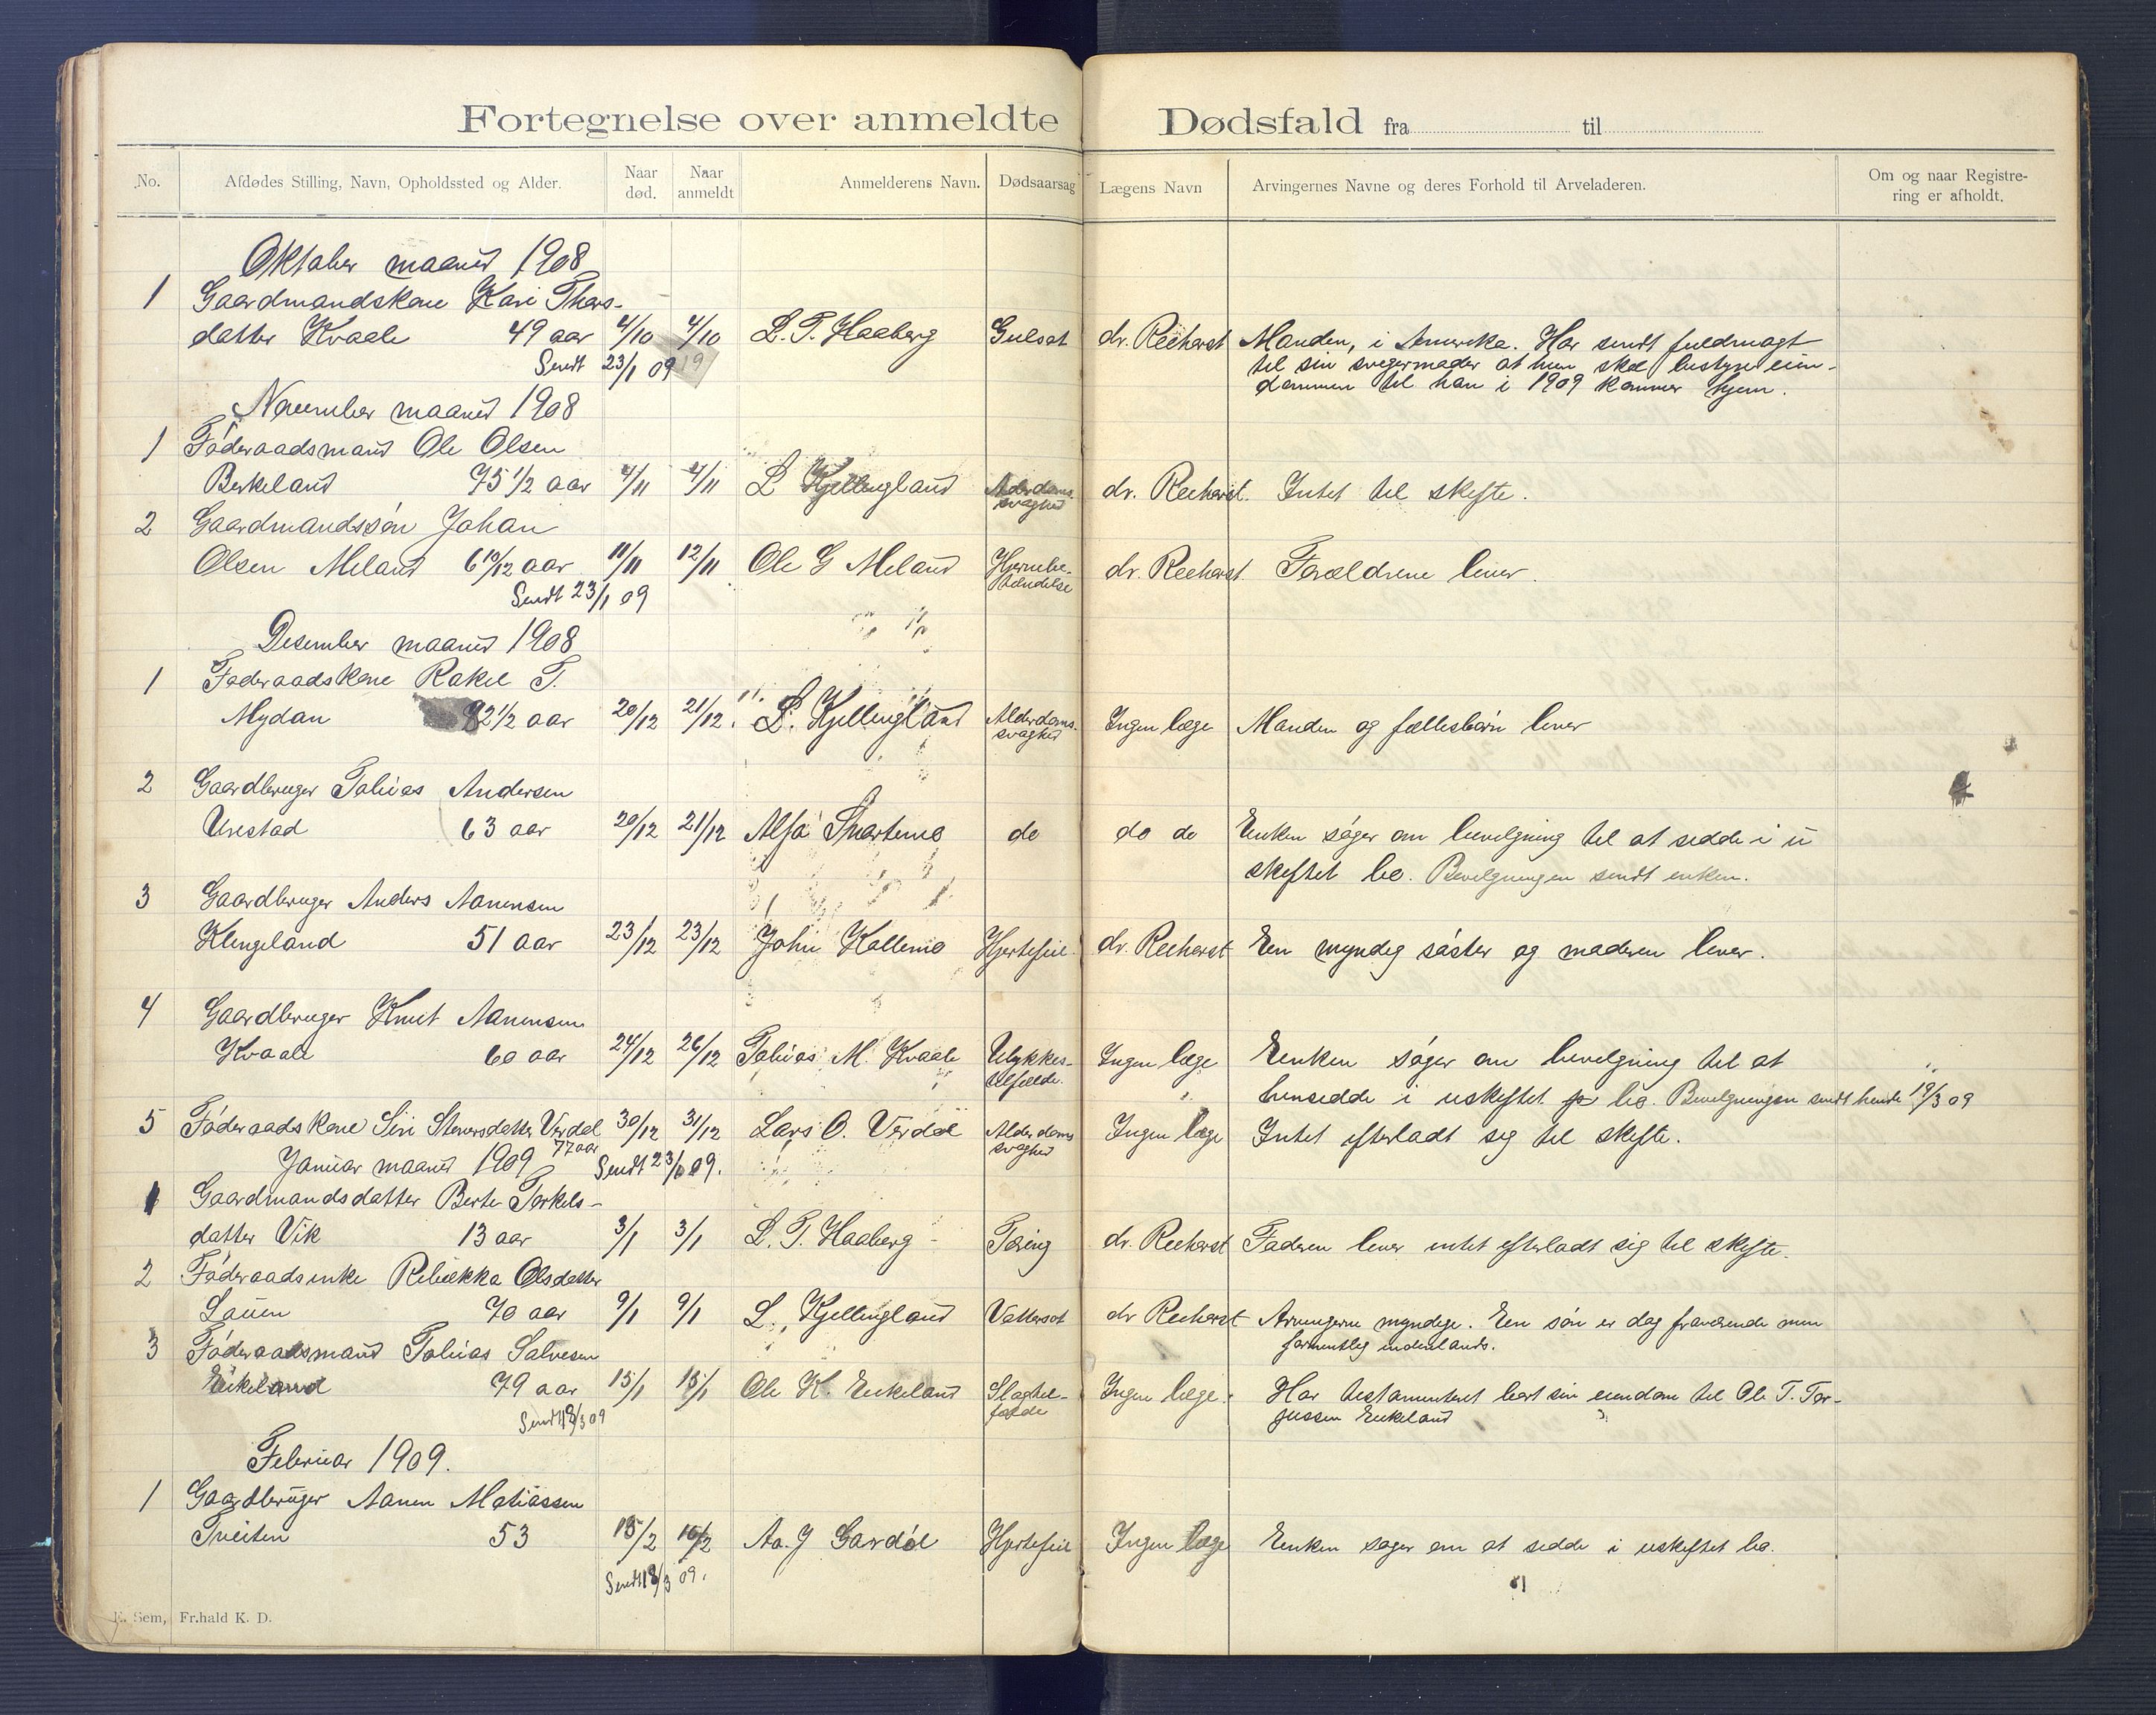 Fortegnelse over anmeldte Dødsfald fra til
No. Afdødes Stilling, Navn, Opholdssted og Alder. Naar død. Naar anmeldt Anmelderens Navn. Dødsaarsag Lægens Navn Arvingernes Navne og deres Forhold til Arveladeren. Om og naar Registrering er afholdt.
Oktober maaned 1908
1 Gaardmandskone Kari Thors-
datter Kvaale 49 aar 4/10 4/10 L. T. Haaberg Gulsot dr. Reehorst Manden, i Amerika. Har sendt fuldmagt
til sin svigermoder at hun skal bestyre eien-
dommen til han i 1909 kommer hjem.
Sendt 23/1 09
November maaned 1908
1 Føderaadsmand Ole Olsen
Birkeland 75 1/2 aar 4/11 4/11 L Kjellingland Alderdoms svaghed dr. Reehorst. Intet til skifte.
2 Gaardmandssøn Johan
Olsen Meland 6 10/12 aar 11/11 12/11 Ole G Meland Hjernebe-
tændelse dr. Reehorst. Forældrene lever.
Sendt 23/1 09
Desember maaned 1908
1 Føderaadskone Rakel T.
Mydan 82 1/2 aar 20/12 21/12. L. Kjellingland Alderdoms-
svaghed Ingen læge Manden og fællesbørn lever
2 Gaardbruger Tobias Andersen
Urestad 63 aar 20/12 21/12 Alfø Snartemo do do do Enken søger om bevilgning til at sidde i u
skiftet bo. Bevilgningen sendt enken.
3 Gaardbruger Anders Aanensen
Klungeland 51 aar 23/12 23/12 John Kollemo Hjertefeil dr. Reehorst En myndig søster og moderen lever.
4 Gaardbruger Knut Aanensen
Kvaale 60 aar 24/12 26/12 Tobias M. Kvaale Ulykkes-
tilfælde. Ingen læge Enken søger om bevilgning til at
hensidde i uskiftet bo. Bevilgningen sendt hende 19/3 09
5 Føderaadskone Siri Siversdatter Verdal 77 aar 30/12 31/12 Lars O. Verdal Alderdoms svaghed Ingen læge Intet efterladt sig til skifte.
Januar maaned 1909 Sendt 23/1 09.
1 Gaardmandsdatter Berte Torkels-
datter Vik 13 aar 3/1 3/1 L. T. Haaberg Tæring dr. Reehorst Faderen lever intet efterladt sig til skifte.
2 Føderaadsenke Rebekka Olsdatter
Lauen 70 aar 9/1 9/1 L. Kjellingland Vattersot dr Reehorst Arvingerne myndige. En søn er dog fraværende men
formentlig indenlands.
3 Føderaadsmand Tobias Salvesen
Eikeland 79 aar 15/1 15/1 Ole K. Eikeland Slagtil-
fælde Ingen læge. Har testamenteret bort sin eiendom til Ole T. Tor-
jussen Eikeland
Sendt 18/3 09
Februar 1909.
1 Gaardbruger Aanen Matiassen
Tveiten 53 15/2 16/2 Aa. J Gardøl Hjertefeil Ingen læge Enken søger om at sidde i uskiftet bo.
Sendt 18/3 09.
E. Sem, Fr.hald K. D.